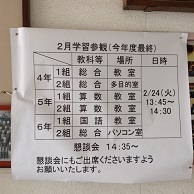 2月学習参観(今年度最終)
教科等 場所 日時
4年 1組 総合 教室
2組 総合 多目的室
5年 1組 算数 教室
2組 算数 教室
6年 1組 国語 教室
2組 総合 パソコン室
2/24(火)
13:45〜
14:30
懇談会 14:35〜
懇談会にもご出席くださいますよう
お願いいたします。